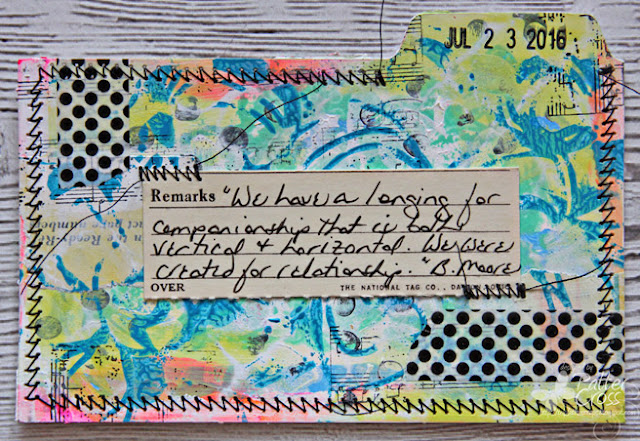 JUL 2 3 2016
Remarks "We have a longing for
companionship that is both
vertical + horizontal. We were
created for relationship." B. Moore
OVER THE NATIONAL TAG CO.,
n the Ready-R